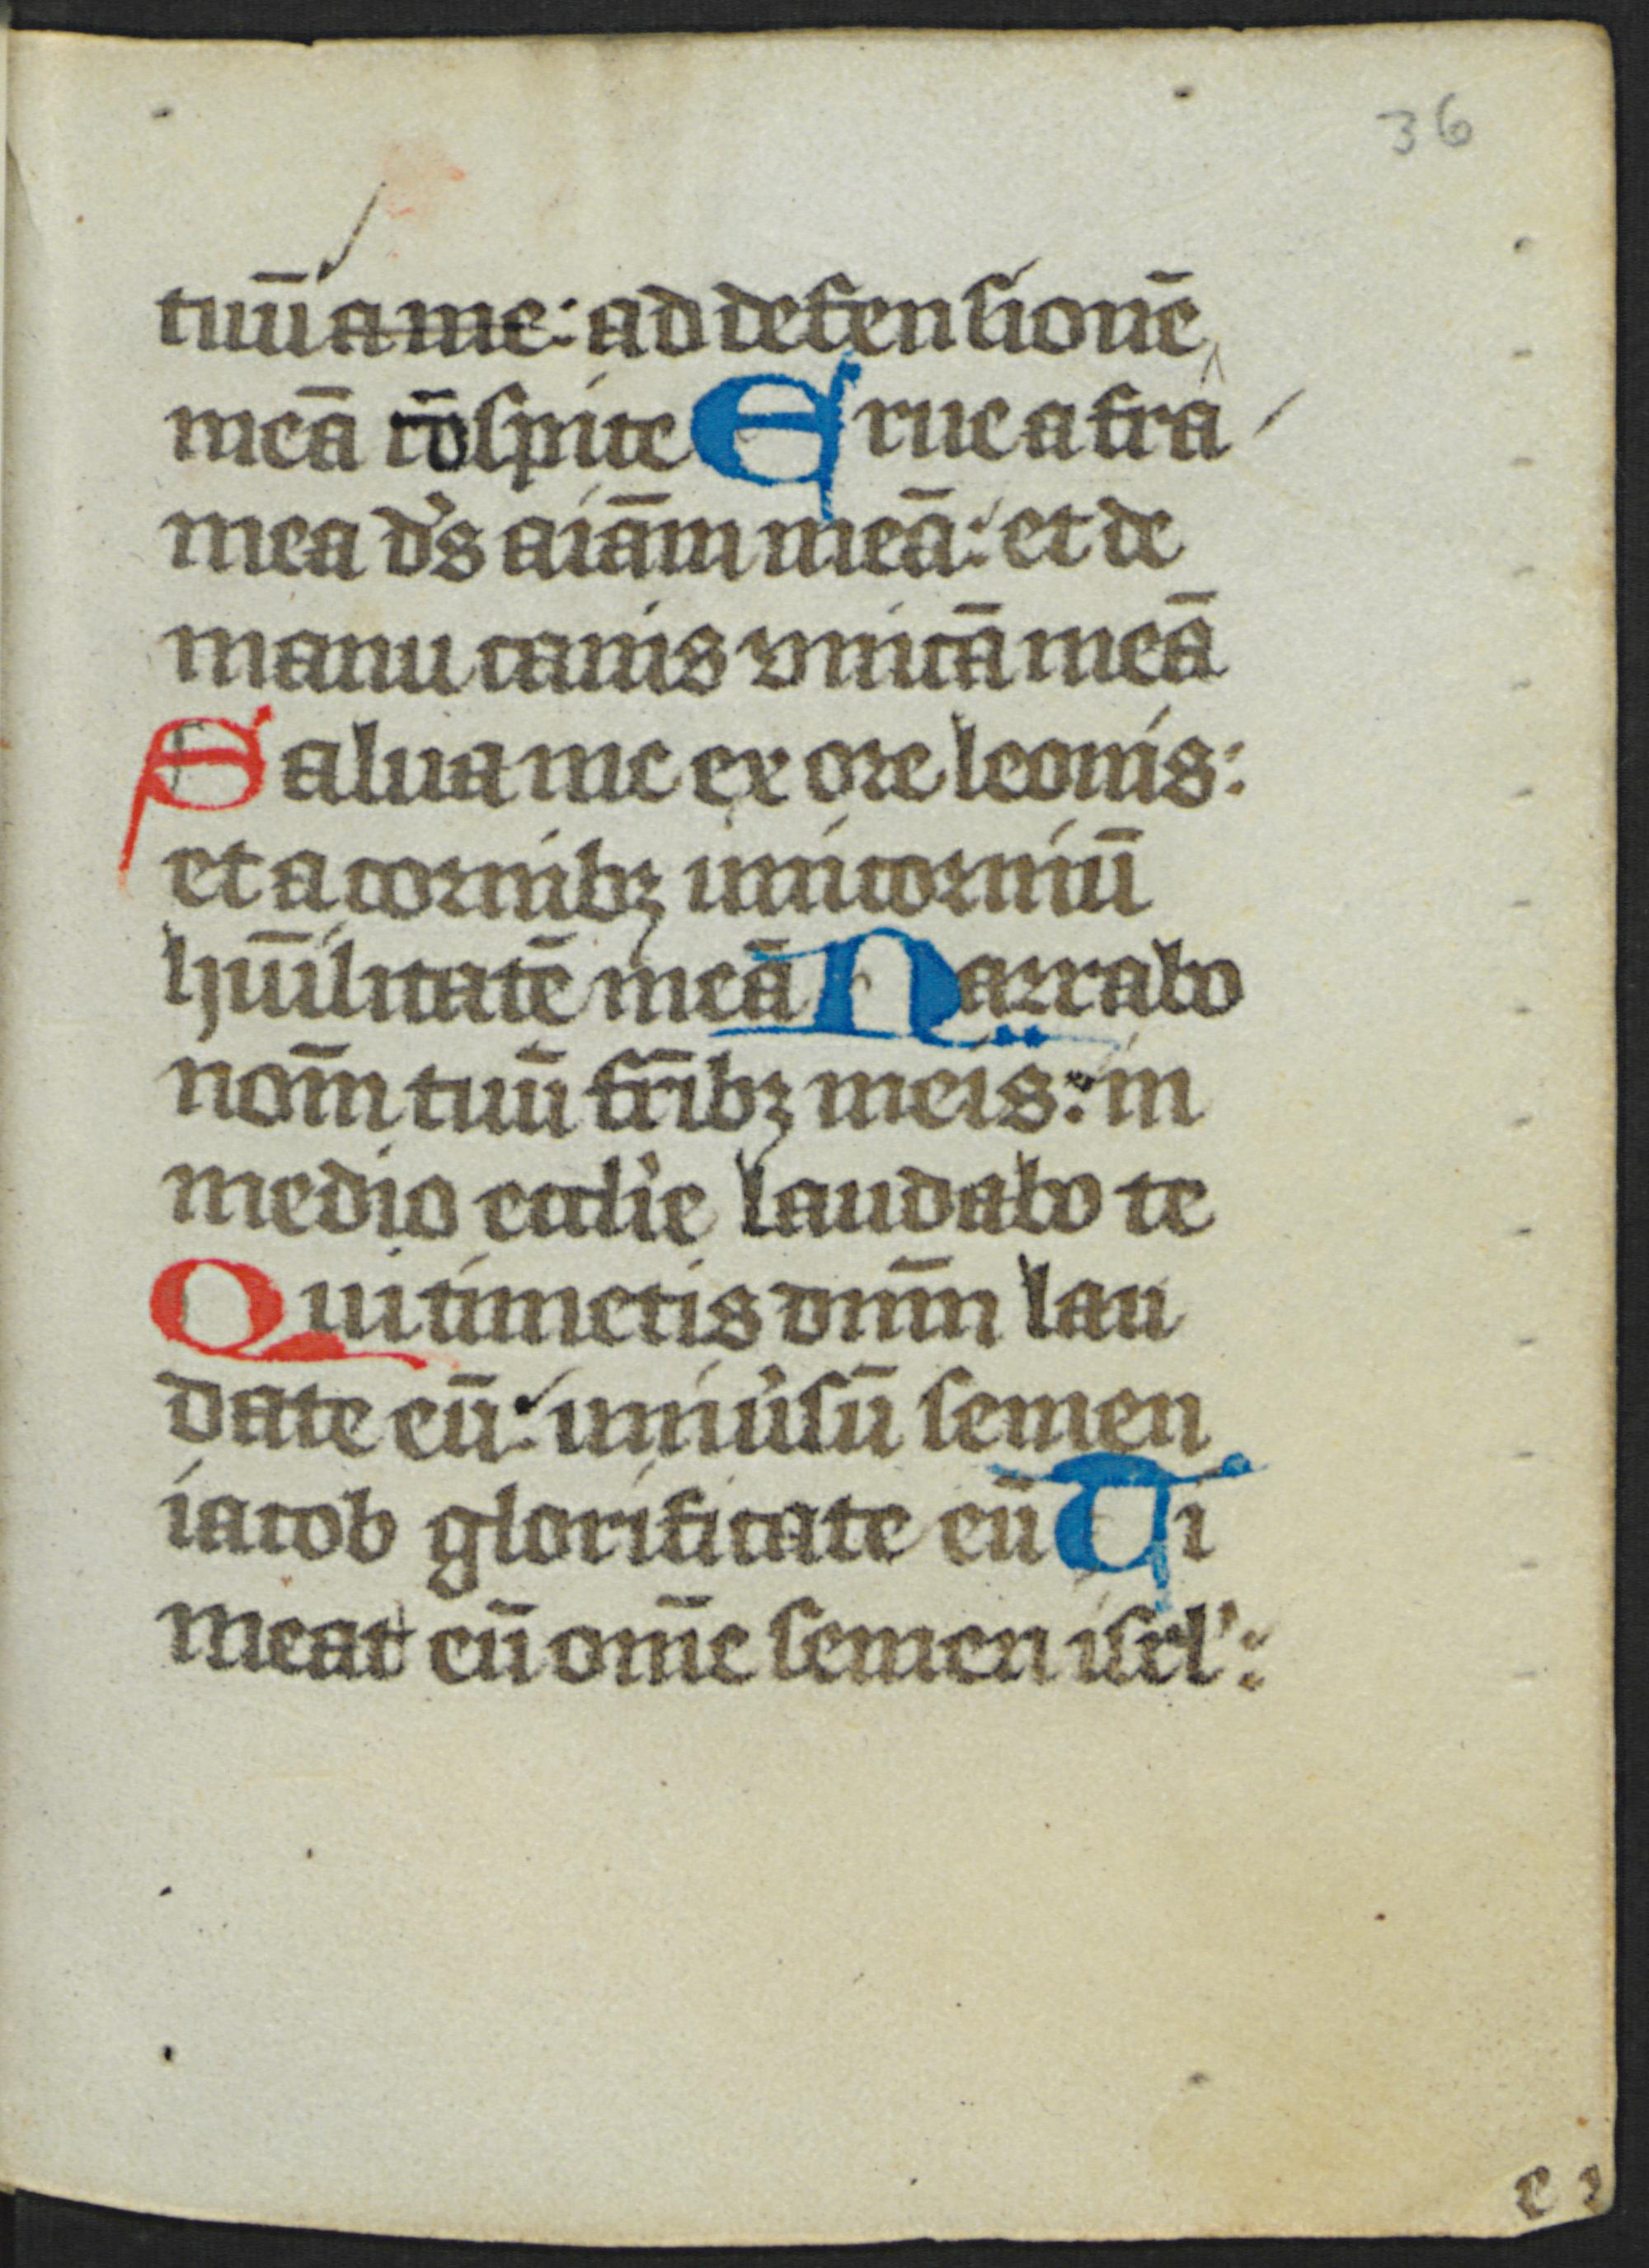 36
tuū a me: ad defensionē
meā cōspice Erue a fra
mea d's aīam meā: et de
manu canis vnicā meā
Salua me ex ore leonis:
et a cornibꝫ unicorniū
hūilitatē meā Narrabo
nom̄ tuū fr̄ibꝫ meis: in
medio eccl'ie laudabo te
Qui timetis dnm̄ lau
date eū: uniu'sū semen
iacob glorificate eū Ti
meat eū om̄e semen isrl':